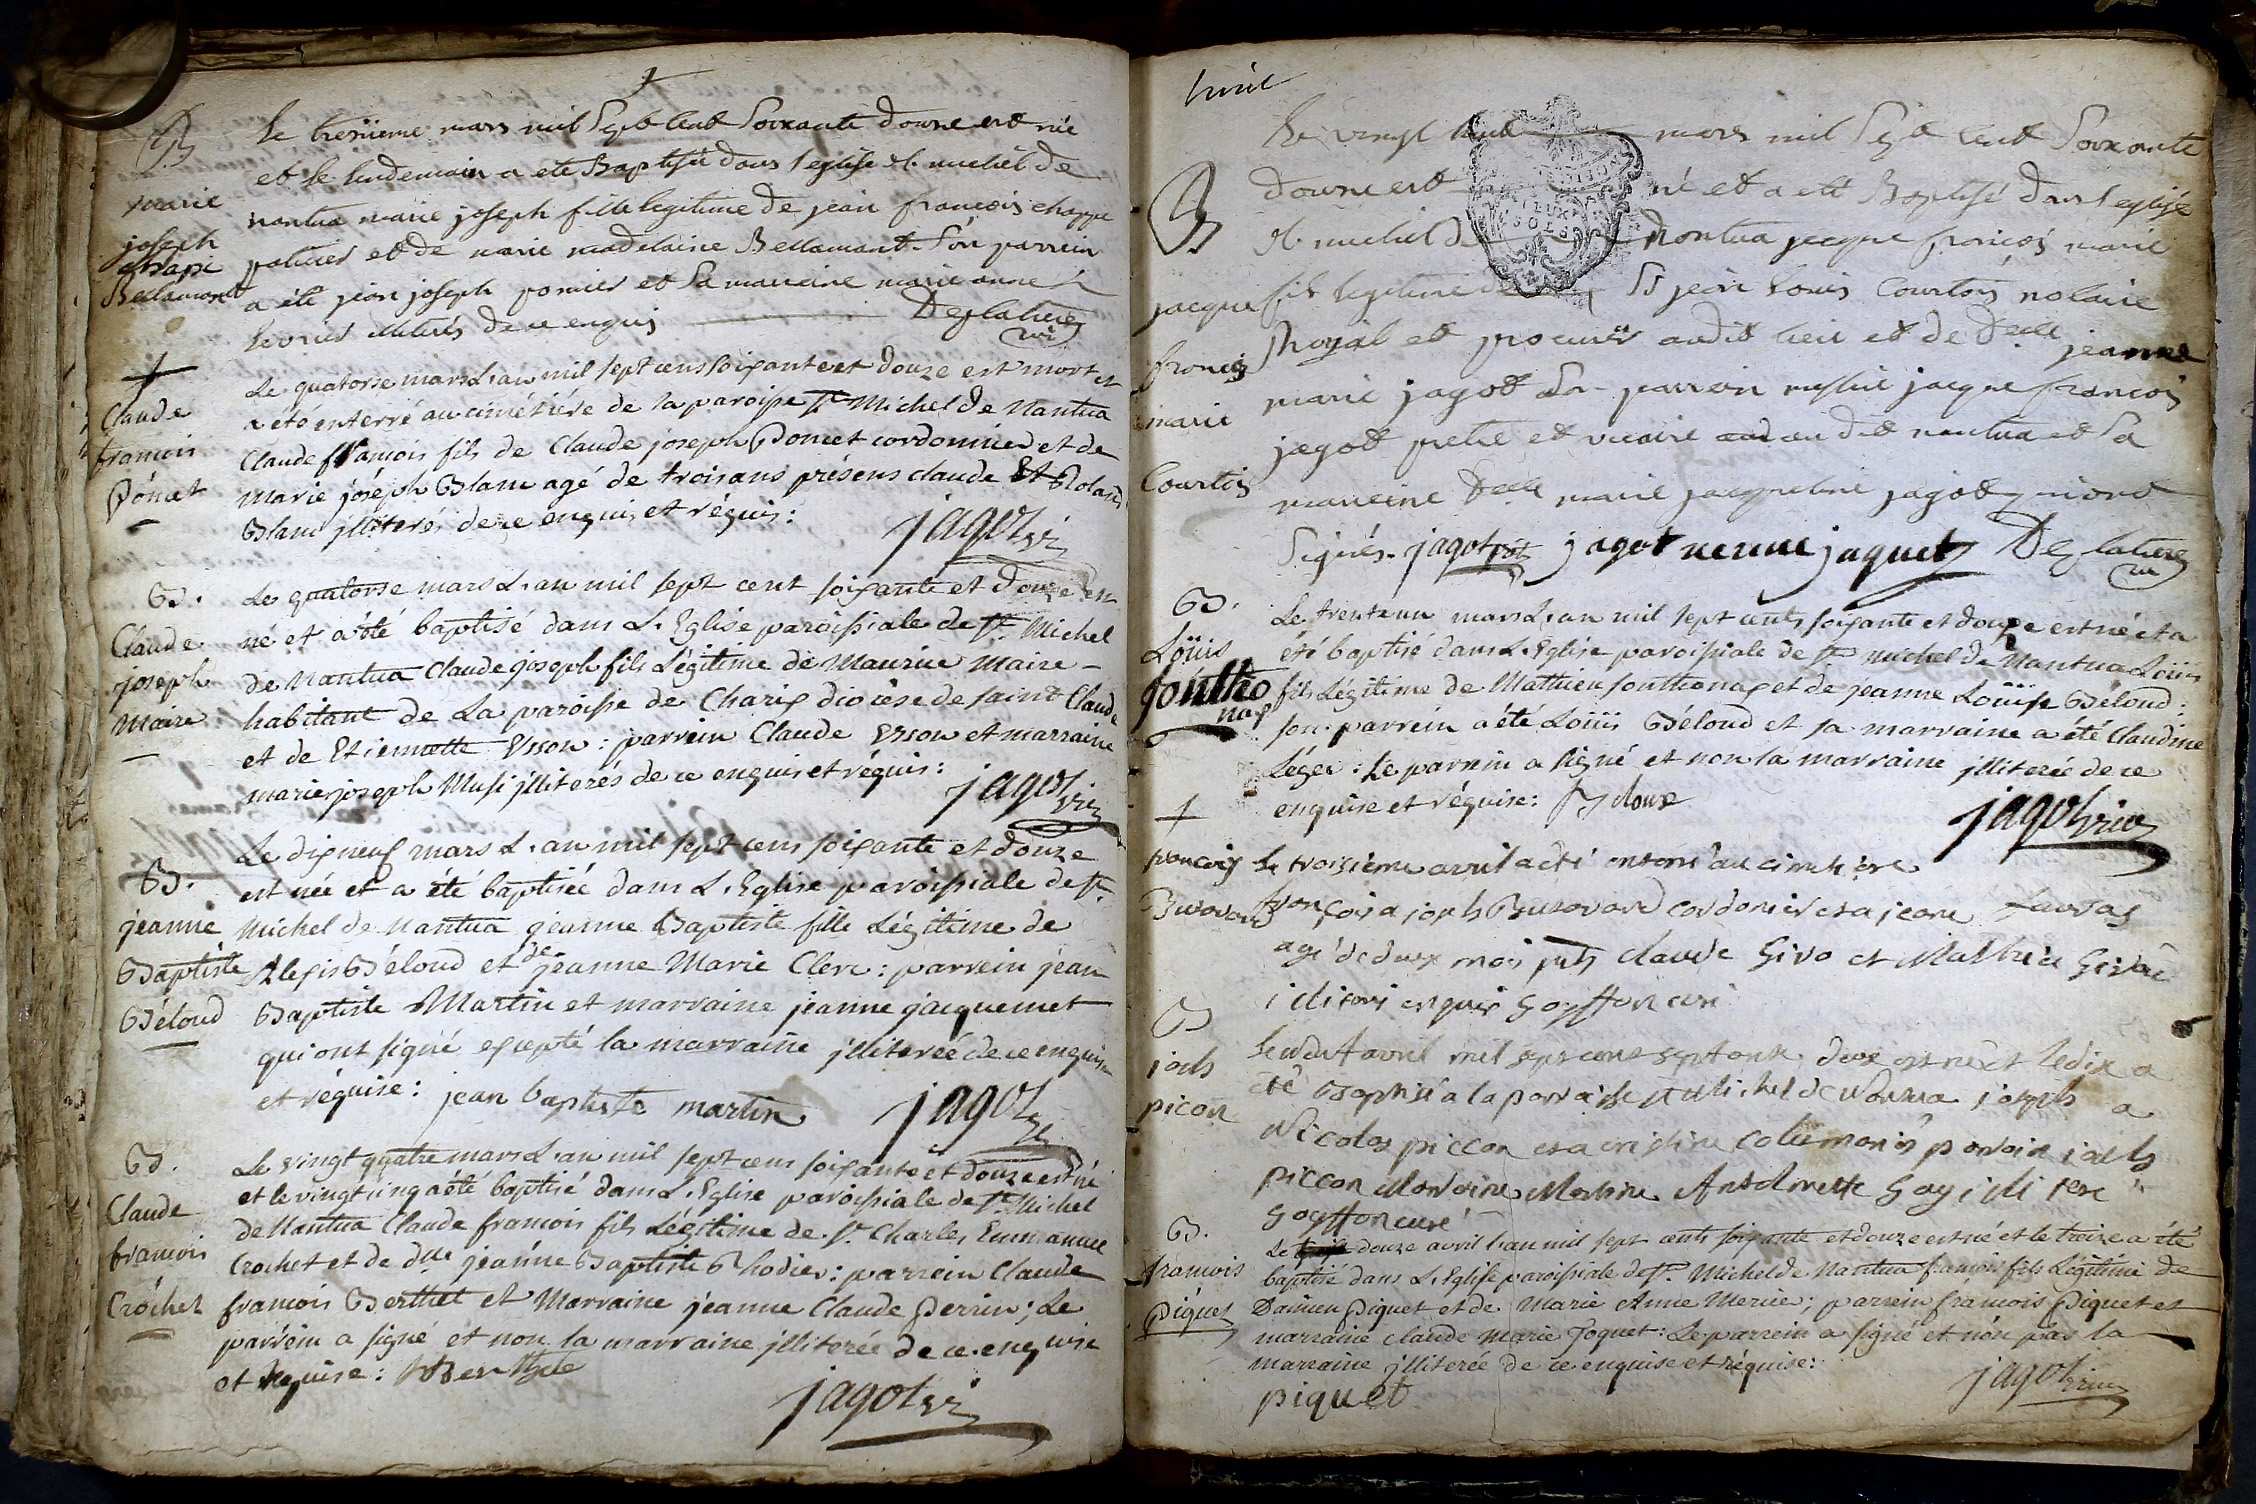 B
marie
joseph
chape
Bellamont
Le tresiieme mars mil sept cent soixante douze est née
et le lendemain a ete Baptisée dans l eglise st. michel de
nantua marie joseph fille legitime de jean francois chappe
potier et de marie madelaine Bellamant Son parrein
a été jean joseph pomier et Sa maraine marie anne
illiterés de ce enquis Deglatiere
vic
+
Claude
francois
Póncet
Le quatorse mars L'an mil sept cens soixante et douze est mort et
a été enterré au cimétiére de la paroisse st Michel de Nantua
Claude francois fils de Claude joseph Poncet cordonnier et de
Marie joséph Blanc agé de trois ans présens claude Et Roland
Blanc jlliterés de ce enquis et réquis:
jagot vic
B.
Claude
joseph
Maire
Le quatorse mars L'an mil sept cent soixante et douze est
né et a été baptisé dans L'Eglise paroissiale de st. Michel
de Nantua Claude joseph fils Légitime de Maurice Maire
habitant de La paroisse de Charix diocèse de saint Claude
et de Etiennette Ysson: parrein Claude Ysson et marraine
marie joseph Musi jlliterés de ce enquis et réquis:
jagot vic
B.
jeanne
Baptiste
Béloud
Le dix neuf mars L'an mil sept cens soixante et douze
est née et a été baptisée dans L'Eglise paroissiale de st.
Michel de Nantua jeanne Baptiste fille Légitime de
Alexis Béloud et de jeanne Marie Clerc: parrein jean
Baptiste Martin et marraine jeanne jacquemet
qui ont signé excepté la marraine jlliterée de ce enquise
et réquise: jean baptiste martin
jagot vic
B.
Claude
francois
Cróchet
Le vingt quatre mars L'an mil sept cens soixante et douze est né
et le vingt cinq a été baptisé dans L'Eglise paroissiale de st. Michel
de Nantua Claude francois fils Légitime de Sr. Charles Emmanuel
Crochet et de dlle jeanne Baptiste Rhodier: parrein Claude
francois Berthet et Marraine jeanne Claude Perrin; Le
parrein a signé et non la marraine jlliterée de ce enquise
et requise: Berthet
jagot vic
B
jacque
francois
marie
Courtois
Le vingt huit mars mil sept cent soixante
douze est né et a été Baptisé dans l eglise
st. michel de Nantua jacque françois marie
fils legitime de Sr jean Louis Courtois notaire
Royal et procureur audit lieu et de Delle jeanne
marie jagot Son parrein messire jacque francois
jagot pretre et vicaire audit nantua et Sa
marreine Delle marie jacqueline jagot qui ont
Signés. jagot jagot jaquet Deglatiere
vic
B.
Loüis
Sontho
nax
Le trente un mars L'an mil sept cents soixante et douze est né et a
été baptisé dans L'Eglise paroissiale de st michel de Nantua Loüis
fils Légitime de Mathieu Sonthonax et de jeanne Loüise Béloud:
son parrein a été Loüis Béloud et sa marraine a été Claudine
Léger: Le parrein a signé et non la marraine jlliterée de ce
enquise et réquise:
jagot vic
+
francois
Le troisieme avril a eté enterré au cimetiere
francois a joseph cordonier et a jeane
agé de deux mois pnts claude Givo et Mathieu
illiterés enquis Goyffon curé
B
joseph
picon
avril mil sept cens septante deux est né et le dix a
été Baptisé a la parroisse st Michel de Nantua joseph a
Nicolas piccon et a cristine parrain joseph
piccon Marraine Antoinette Gay illiteré
Goyffon curé
B.
francois
Piquet
Le douze avril L'an mil sept cents soixante et douze est né et le treize a été
baptisé dans L'Eglise paroissiale de st. Michel de Nantua francois fils Légitime de
Damien Piquet et de Marie Anne Mercier; parrein francois Piquet et
marraine claude Marie Joquet: Le parrein a signé et non pas la
marraine jlliterée de ce enquise et réquise:
piquet
jagot vic